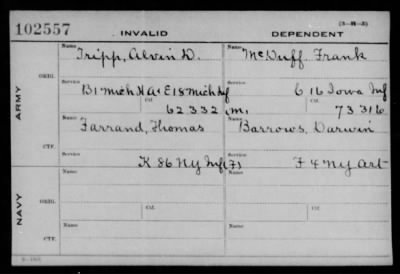 (3-H-2)
102557 INVALID DEPENDENT
Name Name
Tripp, Alvin D. McDuff Frank
ORIG.
Service Service
B1 Mich H A & E 18 Mich Inf C 16 Iowa Inf
ARMY
Ctf. 62332 Ctf. (m. 73316
Name Name
Farrand, Thomas Barrows, Darwin
CTF.
Service Service
K 86 Ny Inf (7) F 4 Ny Art
Name Name
ORIG.
Service Service
NAVY
Ctf. Ctf.
Name Name
CTF.
Service Service